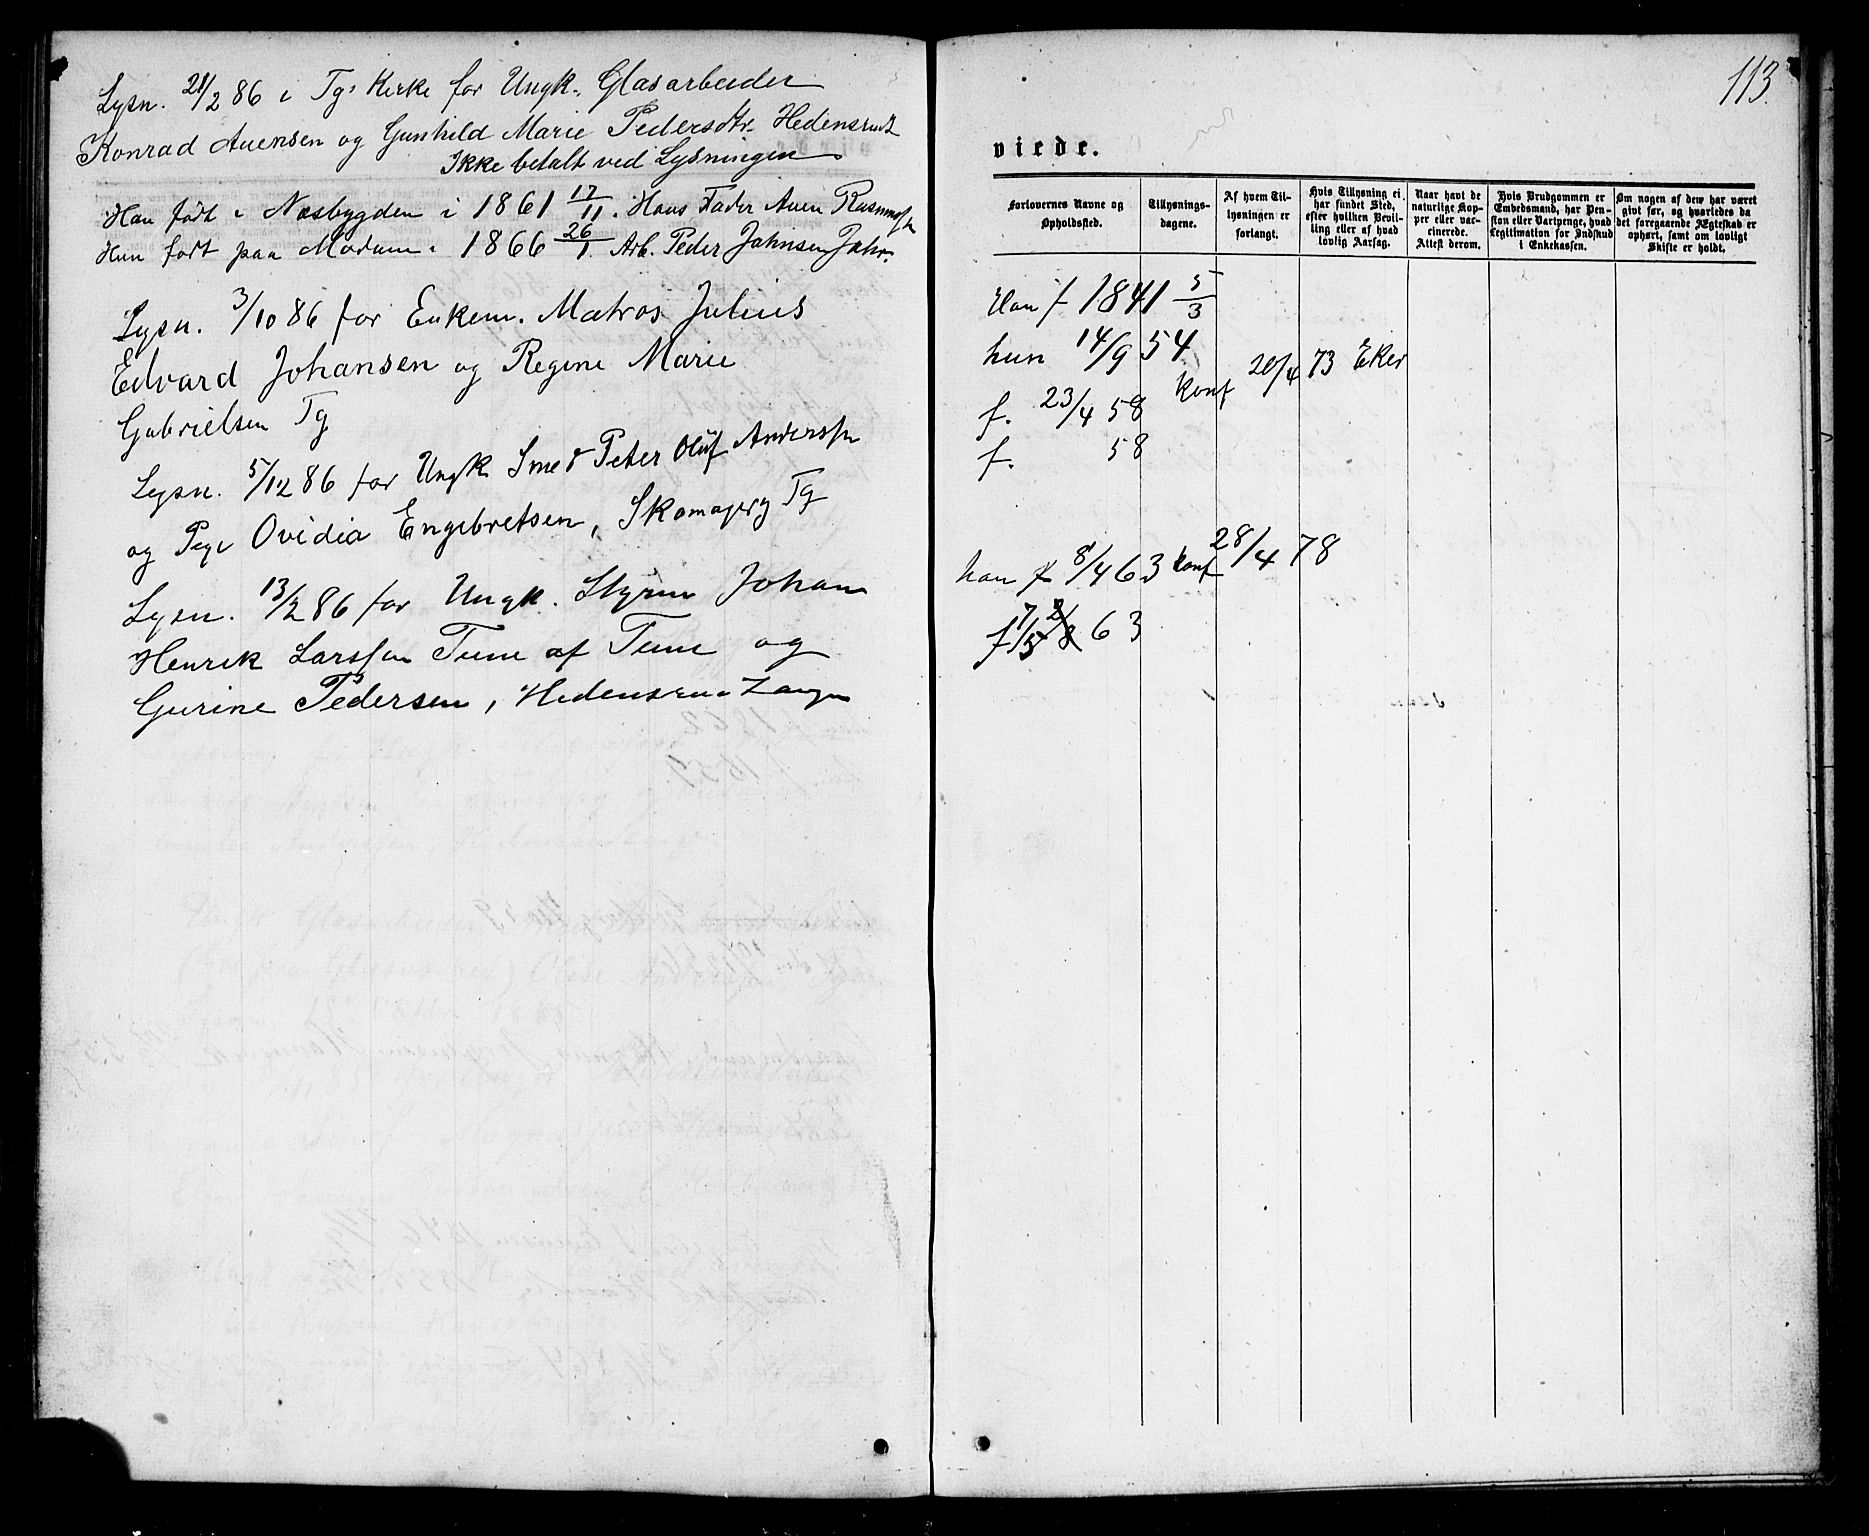 Lysn. 21/2 86 i Tgs Kirke for Ungk. Glasarbeider
Konrad Auensen og Gunhild Marie Pedersdtr. Hedensrud
Ikke betalt ved Lysningen
Han født i Næsbygden i 1861 17/11. Hans Fader Auen Rasmussen
Hun født paa Modum i 1866 26/1. Arb. Peder Johnsen
Lysn. 3/10 86 for Enkem. Matros Julius
Edvard Johansen og Regine Marie
Gabrielsen Tg
Lysn. 5/12 86 for Ungk Smed Peter Oluf Anderssen
og Pige Ovidia Engebretsen, Tg
Lysn. 13/2 86 for Ungk. Styrm Johan
Henrik Larssen Tune af Tune og
Gurine Pedersen, Hedensrud
113.
viede.
Forlovernes Navne og Opholdssted.
Tillysnings-dagene.
Af hvem Til-lysningen er forlangt.
Hvis Tillysning ei har fundet Sted, efter hvilken Bevil-ling eller af hvad lovlig Aarsag.
Naar havt de naturlige Kop-per eller vac-cinerede. Attest derom.
Hvis Brudgommen er Embedsmand, har Pen-sion eller Vartpenge, hvad Legitimation for Indskud i Enkekassen.
Om nogen af dem har været givt før, og hvorledes da det foregaaende Ægteskab er ophørt, samt om lovligt Skifte er holdt.
Han f 1841 5/3
hun 14/9 54
konf 20/4 73 Eker
f. 23/4 58
f. 58
han f 8/4 63 konf 28/4 78
f 7/5 63